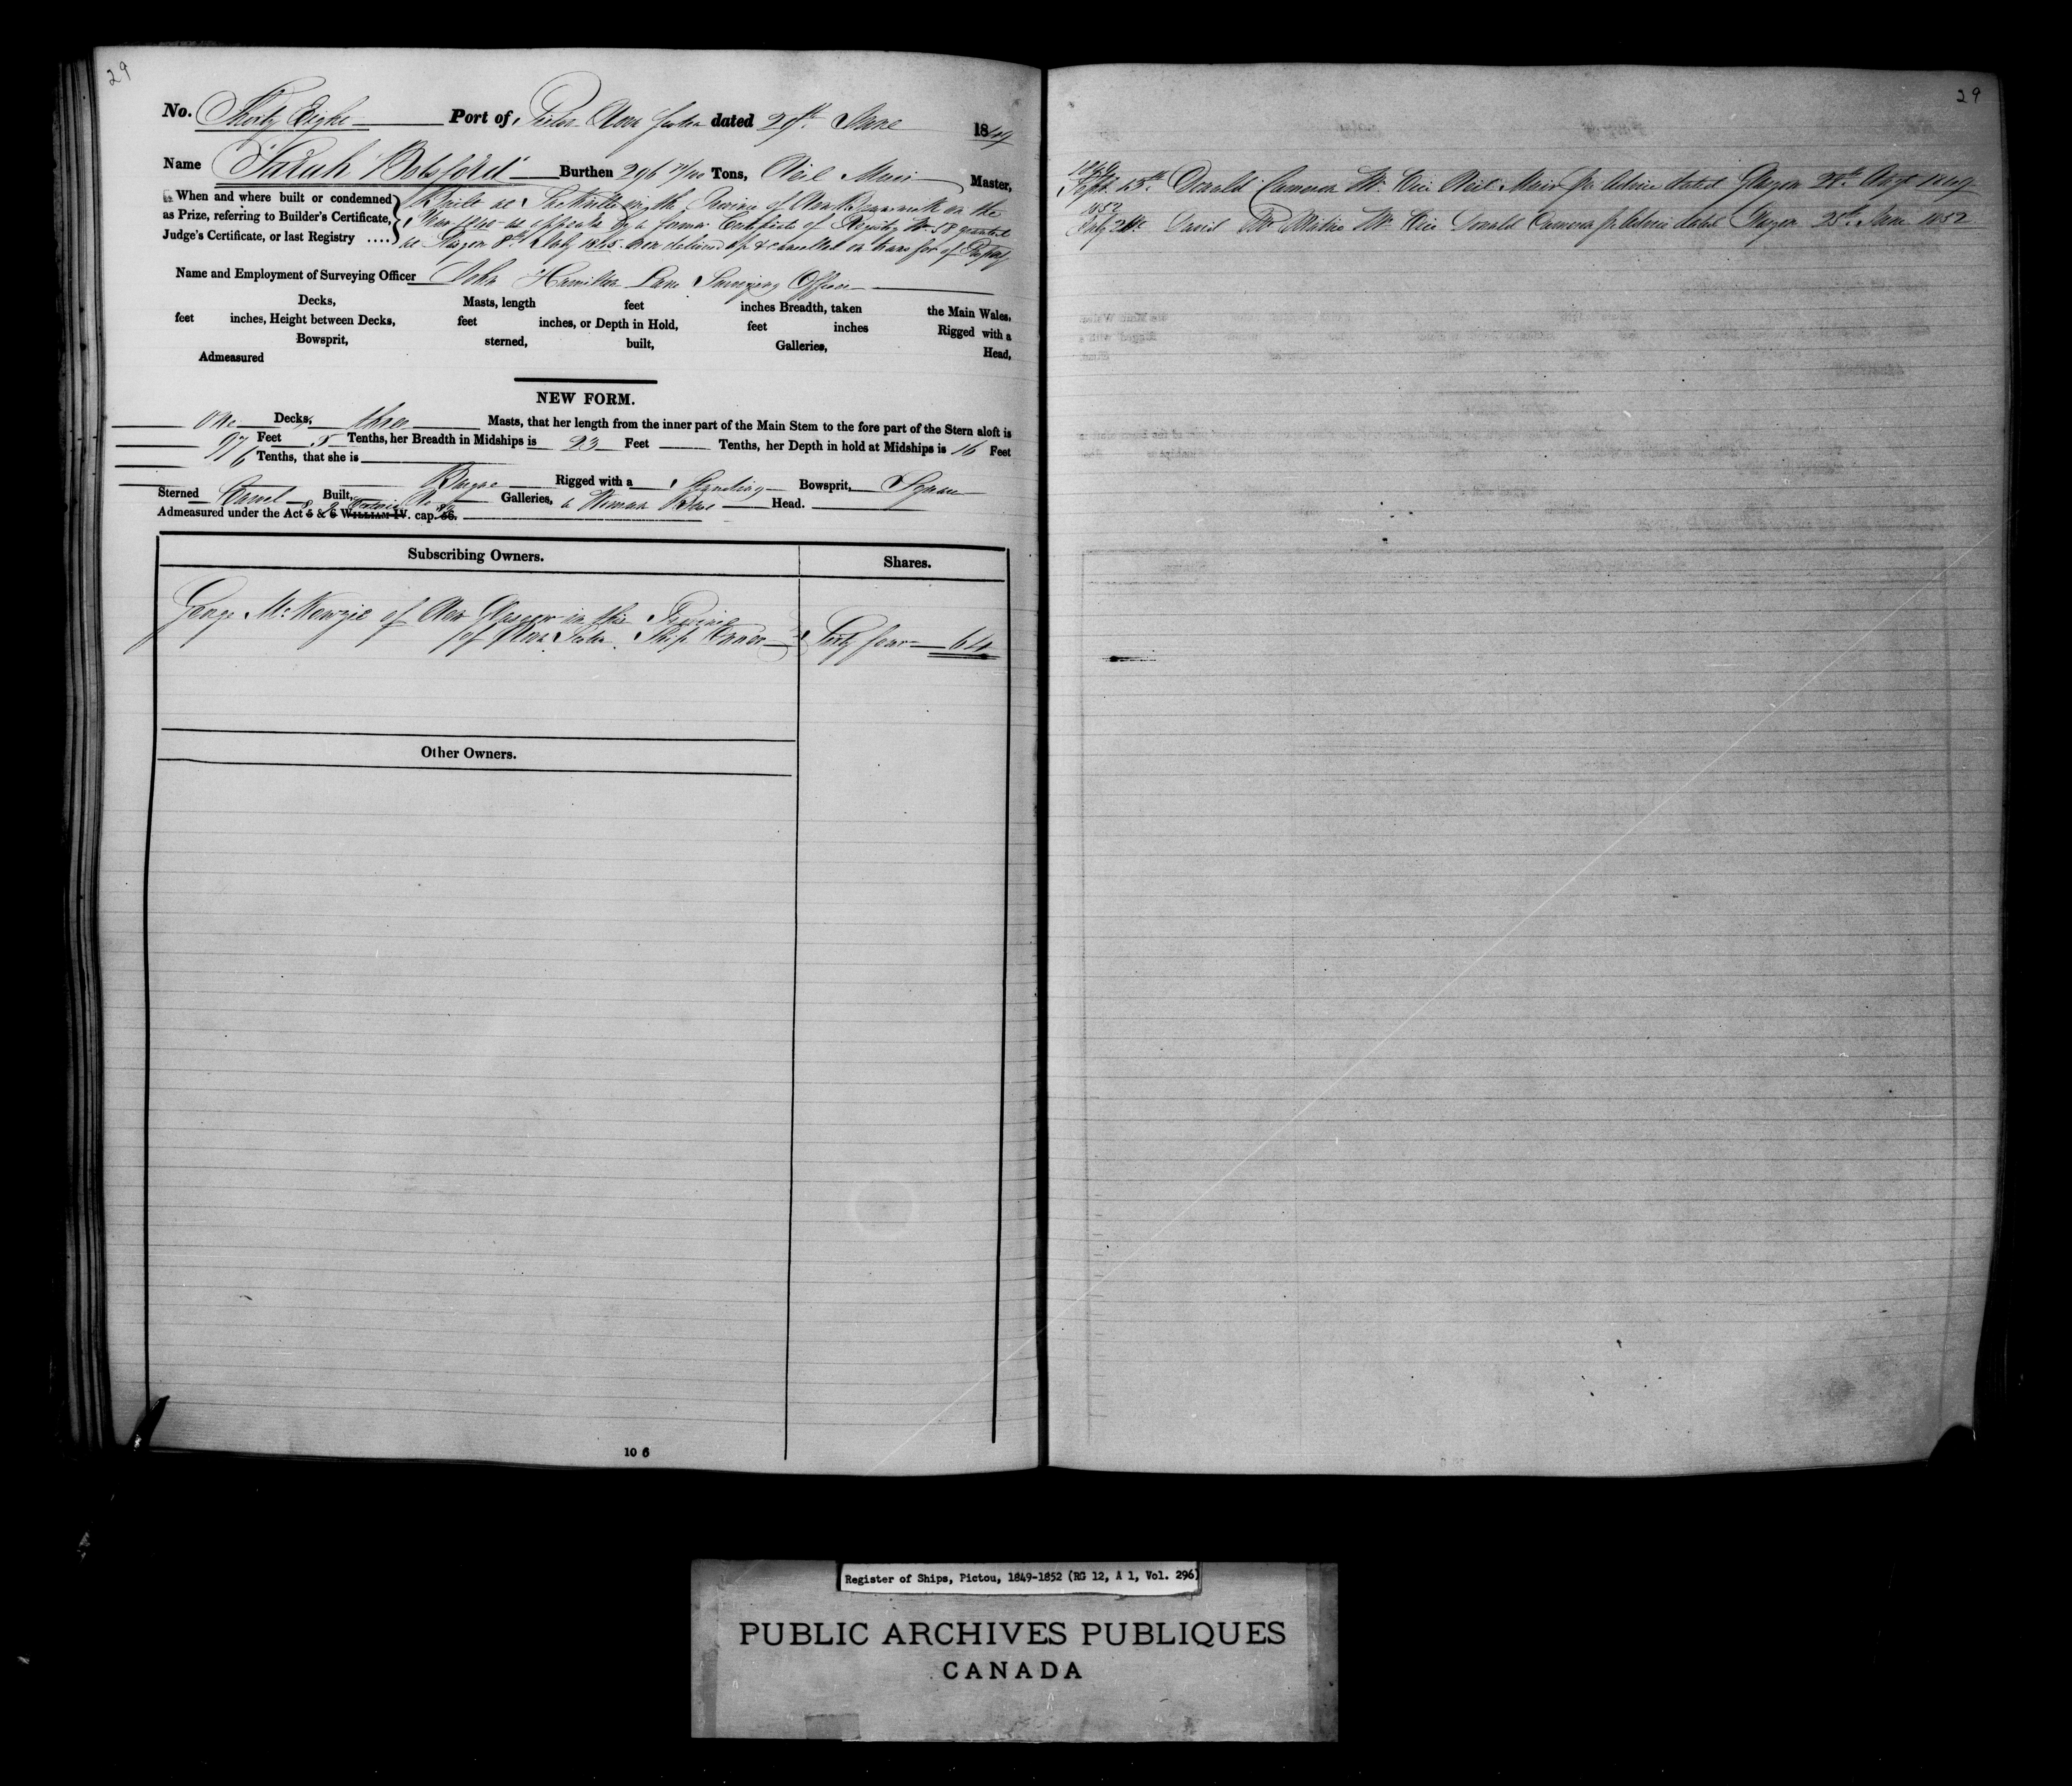 29
No. Thirty Eight Port of Pictou Nova Scotia dated 29th June 1849
Name "Sarah Botsford" Burthen 296 Tons, Neil Muir Master,
When and where built or condemned
as Prize, referring to Builder's Certificate,
Judge's Certificate, or last Registry ....
Built at in the Province of New Brunswick in the
Year 1840 as appears by a former Certificate of Registry No. 58 granted
at Glasgow 8th July 1845 now delivered up & cancelled on transfer of Property
Name and Employment of Surveying Officer John Hamilton Lane Surveying Officer
Decks, Masts, length feet inches Breadth, taken the Main Wales,
feet inches, Height between Decks, feet inches, or Depth in Hold, feet inches Rigged with a
Bowsprit, sterned, built, Galleries, Head,
Admeasured
NEW FORM.
One Decks, three Masts, that her length from the inner part of the Main Stem to the fore part of the Stern aloft is
97 Feet 5 Tenths, her Breadth in Midships is 23 Feet Tenths, her Depth in hold at Midships is 16 Feet
6 Tenths, that she is
Barque Rigged with a Standing Bowsprit, Square
Sterned Carvel Built, No Galleries, a Woman Head.
Admeasured under the Act 5 & 6 WILLIAM IV. cap. 56.
8 9 Victoria
Subscribing Owners. Shares.
George McKenzie of New Glasgow in the Province
of Nova Scotia Ship Owner Sixty four 64
Other Owners.
10 6
29
1849
Sept. 25th Donald Cameron Mr. vice Neil Muir pr Advice dated Glasgow 28th Augt 1849
1852
July 24th David Mr. vice Donald Cameron pr Advice dated Glasgow 25th June 1852
Register of Ships, Pictou, 1849-1852 (RG 12, A 1, Vol. 296)
PUBLIC ARCHIVES PUBLIQUES
CANADA